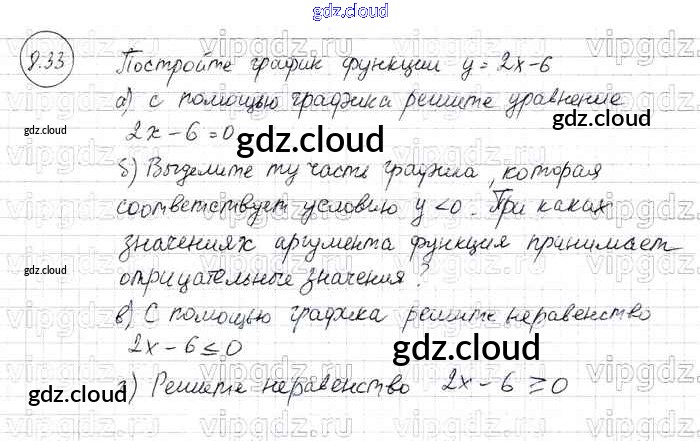 gdz.cloud
8.33 Постройте график функции y = 2x-6
а) с помощью графика решите уравнение
2x - 6 = 0
б) Выделите ту часть графика, которая
соответствует условию y < 0. При каких
значениях аргумента функция принимает
отрицательные значения?
в) С помощью графика решите неравенство
2x - 6 ≤ 0
г) Решите неравенство 2x - 6 ≥ 0
gdz.cloud
gdz.cloud
gdz.cloud
gdz.cloud
gdz.cloud
gdz.cloud
gdz.cloud
gdz.cloud